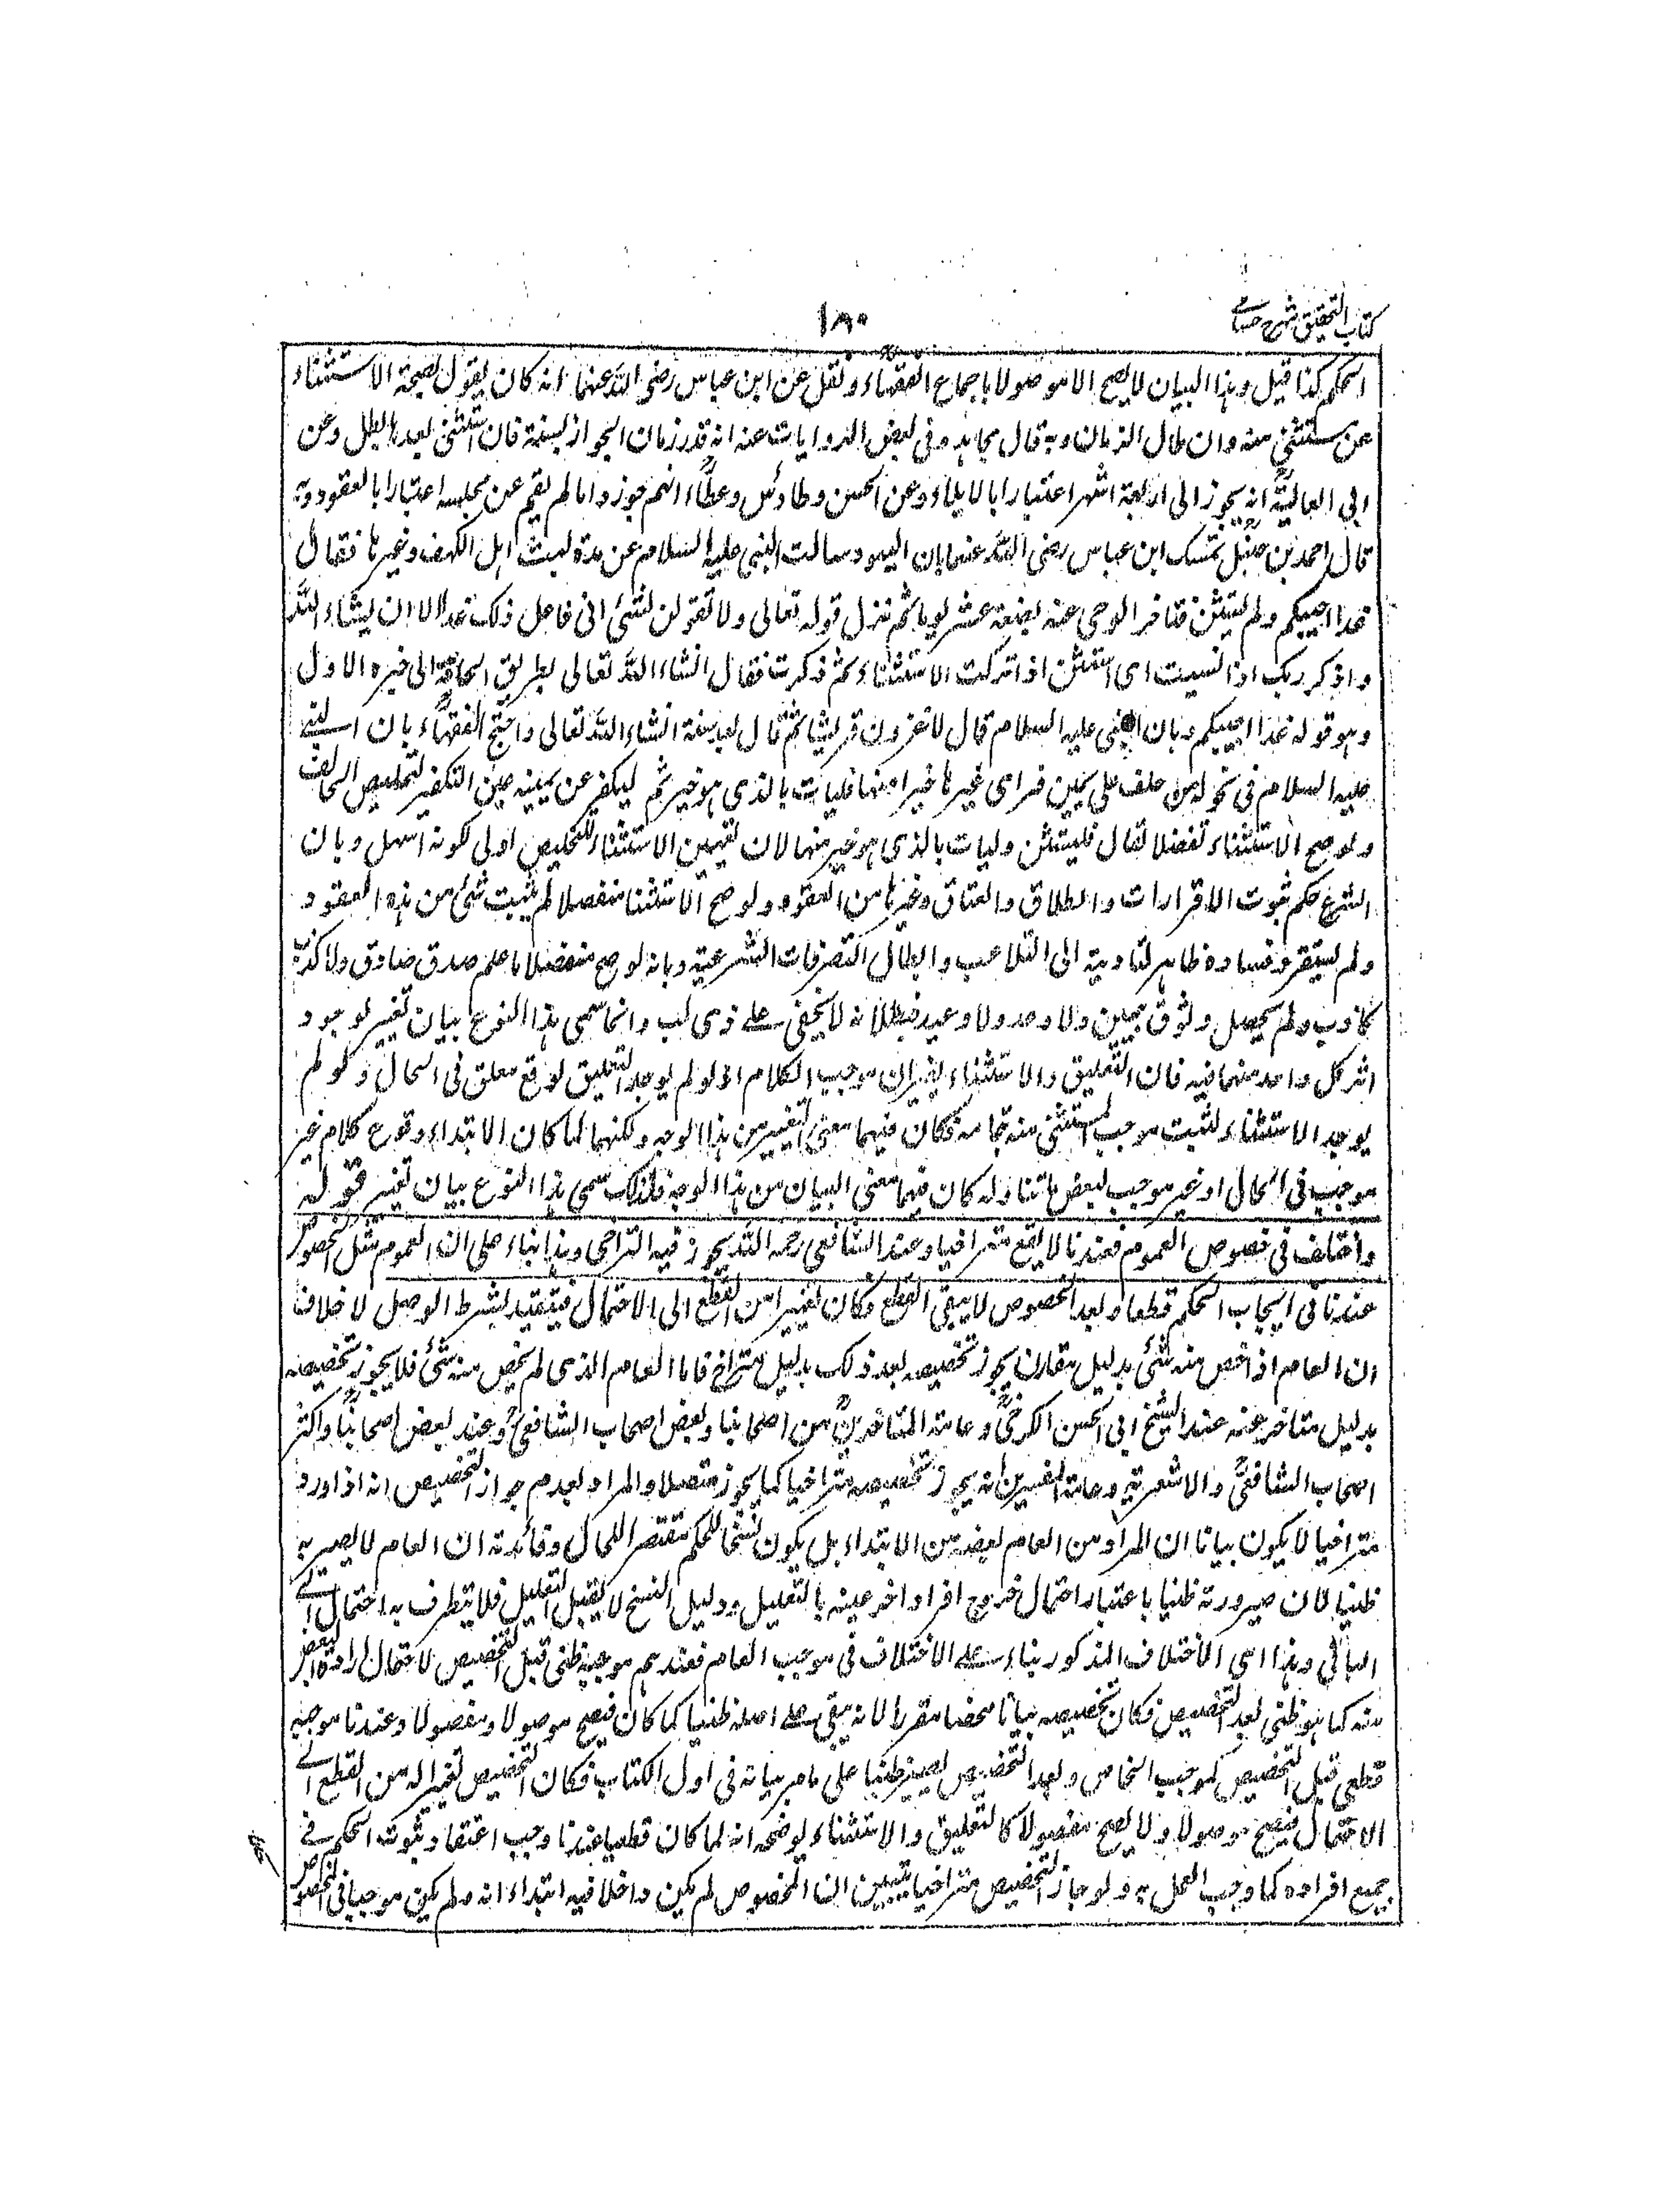 كتاب التحقيق شرح حسامي
١٨٠
الحكم كذا قيل وهذا البيان لا يصح الا موصولا باجماع الفقهاء ونقل عن ابن عباس رضى الله عنهما انه كان يقول بصحة الاستثناء
عن مستثنى منه وان طال الزمان وبه قال مجاهد وفى بعض الروايات عنه انه قدر زمان الجواز بسنة فان استثنى بعدها بطل وعن
ابى العالية انه يجوز الى اربعة اشهر اعتبارا بالايلاء وعن الحسن وطاوس وعطاء انهم جوزوا ما لم يقم عن مجلسه اعتبارا بالعقود وبه
قال احمد بن حنبل تمسك ابن عباس رضى الله عنهما بان اليهود سالت النبى عليه السلام عن مدة لبث اهل الكهف وغيرها فقال
غدا اجيبكم ولم يستثن فتاخر الوحى عنه بضعة عشر يوما ثم نزل قوله تعالى ولا تقولن لشئ انى فاعل ذلك غدا الا ان يشاء الله
واذكر ربك اذا نسيت اى استثن اذا تركت الاستثناء ثم ذكرت فقال انشاء الله تعالى بطريق الحاقه الى خبره الاول
وهو قوله غدا اجيبكم وبان النبى عليه السلام قال لاغزون قريشا ثم قال بعد سنة انشاء الله تعالى واحتج الفقهاء بان النبى
عليه السلام فى نحو له من حلف على يمين فراى غيرها خيرا منها فليات بالذى هو خير ثم ليكفر عن يمينه عين التكفير لتخليص الحالف
ولو صح الاستثناء منفصلا لقال فليستثن وليات بالذى هو خير منها لان تعيين الاستثناء للتخليص اولى لكونه اسهل وبان
الشرع حكم بثبوت الاقرارات والطلاق والعتاق وغيرها من العقود ولو صح الاستثناء منفصلا لم يثبت شئ من هذه العقود
ولم يستقر وفساده ظاهر لتاديته الى التلاعب وابطال التصرفات الشرعية وبانه لو صح منفصلا ما علم صدق صادق ولا كذب
كاذب ولم يحصل وثوق بيمين ولا وعد ولا وعيد فبطلانه لا يخفى على ذى لب وانما سمى هذا النوع بيان تغيير لوجود
اثر كل واحد منهما فيه فان التعليق والاستثناء يغيران موجب الكلام اذ لو لم يوجد التعليق لوقع معلق فى الحال ولو لم
يوجد الاستثناء لثبت موجب المستثنى منه بتمامه فكان فيهما معنى التغيير من هذا الوجه ولكنهما لما كان الابتداء وقوع كلام غير
موجب فى الحال او غير موجب لبعض ما تناوله كان فيهما معنى البيان من هذا الوجه فلذلك سمى هذا النوع بيان تغيير قوله
واختلف فى خصوص العموم فعندنا لا يقع متراخيا وعند الشافعى رحمه الله يجوز فيه التراخى وهذا بناء على ان العموم مثل الخصوص
عندنا فى ايجاب الحكم قطعا وبعد الخصوص لا يبقى القطع فكان تغييرا من القطع الى الاحتمال فيتقيد بشرط الوصل لا خلاف
ان العام اذا خص منه شئ بدليل مقارن يجوز تخصيصه بعد ذلك بدليل متراخ فاما العام الذى لم يخص منه شئ فلا يجوز تخصيصه
بدليل متاخر عنه عند الشيخ ابى الحسن الكرخى وعامة المتاخرين من اصحابنا وبعض اصحاب الشافعى وعند بعض اصحابنا واكثر
اصحاب الشافعى والاشعرية وعامة المفسرين انه يجوز تخصيصه متراخيا كما يجوز متصلا والمراد بعدم جواز التخصيص انه اذا ورد
متراخيا لا يكون بيانا ان المراد من العام بعضه من الابتداء بل يكون نسخا للحكم مقتصرا للحال وفائدته ان العام لا يصير به
ظنيا لان صيرورته ظنيا باعتبار احتمال خروج افراد اخر عينه بالتعليل ودليل النسخ لا يقبل التعليل فلا يتطرف به احتمال الى
الباقى وهذا اى الاختلاف المذكور بناء على الاختلاف فى موجب العام فعندهم موجبه ظنى قبل التخصيص لاحتمال ارادة البعض
منه كما هو ظنى بعد التخصيص فكان تخصيصه بيانا محضا مقررا لانه يبقى على اصله ظنيا كما كان فيصح موصولا ومفصولا وعندنا موجبه
قطعى قبل التخصيص كموجب الخاص وبعد التخصيص يصير ظنيا على ما مر بيانه فى اول الكتاب فكان التخصيص تغييرا له من القطع الى
الاحتمال فيصح موصولا ولا يصح مفصولا كالتعليق والاستثناء يوضحه انه لما كان قطعيا عندنا وجب اعتقاد ثبوت الحكم فى
جميع افراده كما وجب العمل به ولو جاز التخصيص متراخيا يتبين ان المخصوص لم يكن داخلا فيه ابتداء انه ولم يكن موجبا فى المخصوص